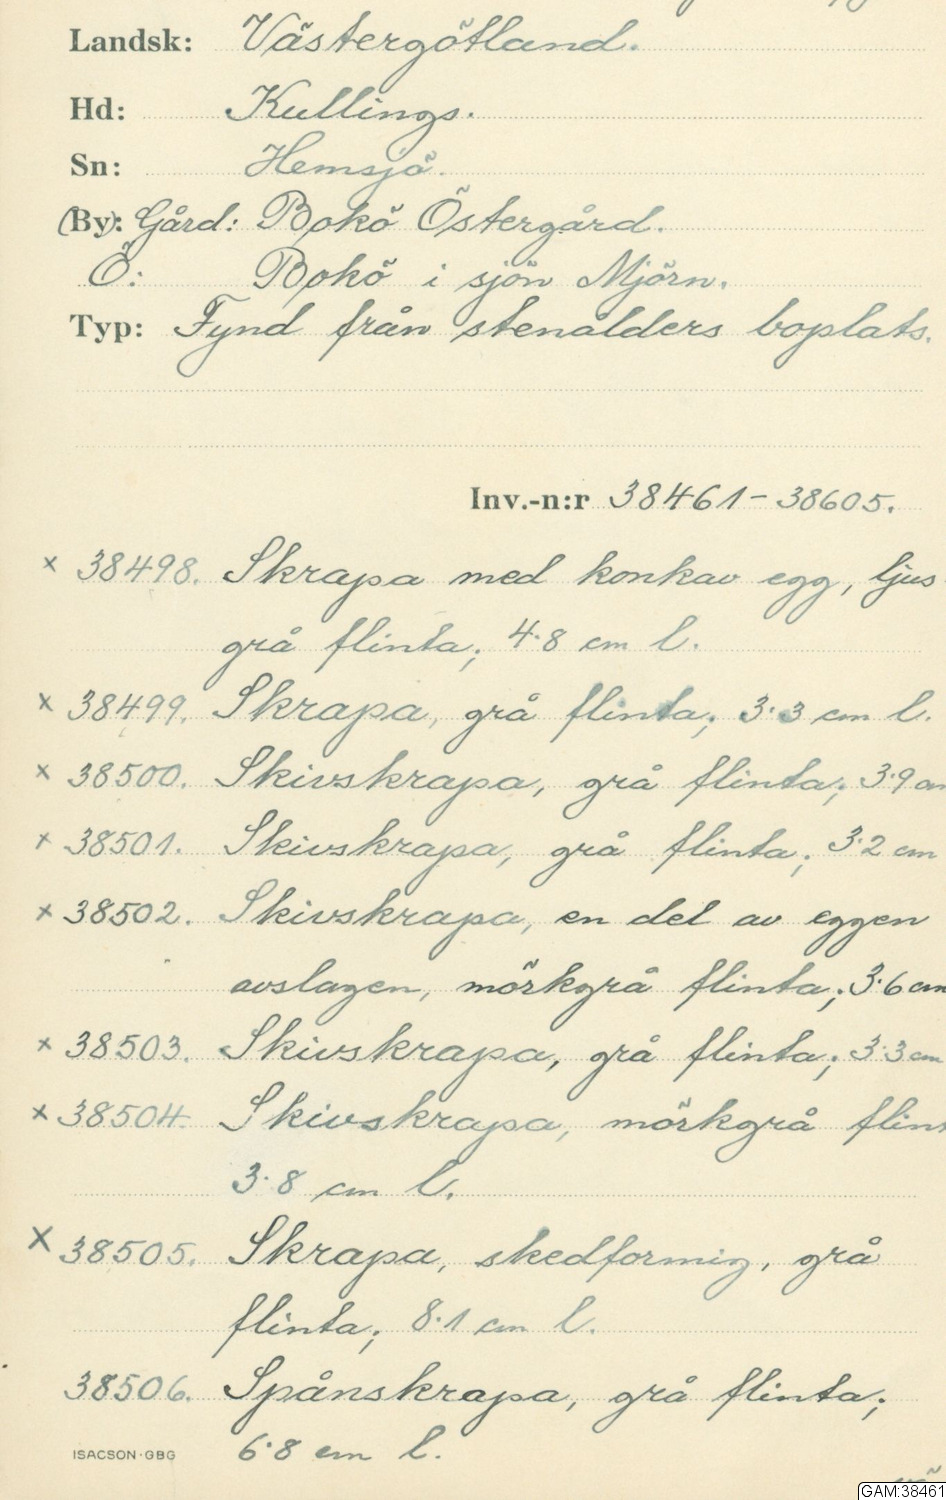 Landsk: Västergötland.
Hd: Kullings.
Sn: Hemsjö.
(By): Gård: Bokö Östergård.
Ö: Bokö i sjön Mjörn.
Typ: Fynd från stenålders boplats.
Inv.-n:r 38461-38605.
x 38498. Skrapa med konkav egg, ljus
grå flinta; 4.8 cm l.
x 38499. Skrapa, grå flinta; 3.3 cm l.
x 38500. Skivskrapa, grå flinta; 3.9 cm
x 38501. Skivskrapa, grå flinta; 3.2 cm
x 38502. Skivskrapa, en del av eggen
avslagen, mörkgrå flinta; 3.6 cm
x 38503. Skivskrapa, grå flinta; 3.3 cm
x 38504. Skivskrapa, mörkgrå flint
3.8 cm l.
X 38505. Skrapa, skedformig, grå
flinta; 8.1 cm l.
38506. Spånskrapa, grå flinta;
6.8 cm l.
ISACSON·GBG
GAM:38461